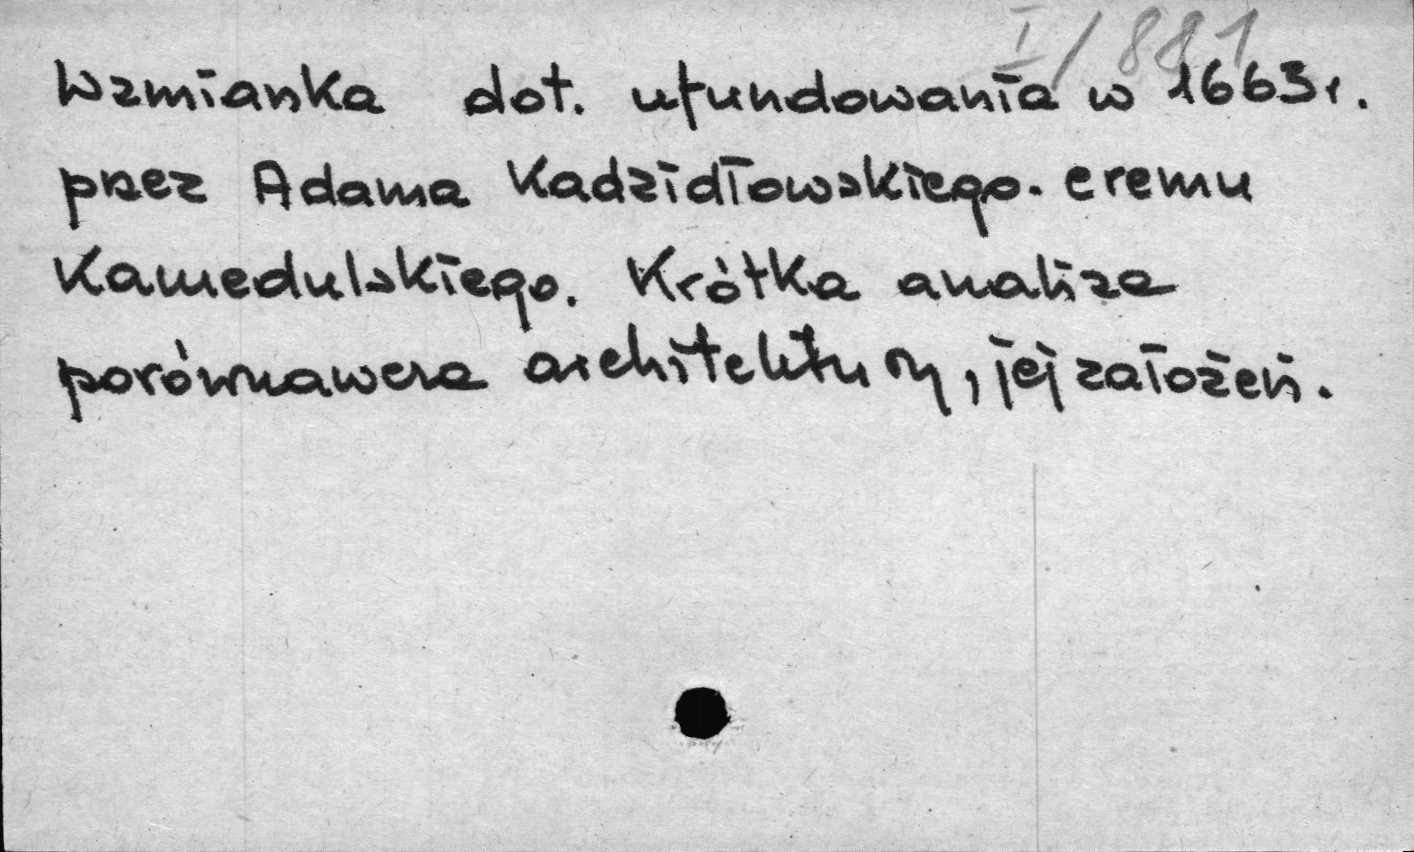 I/881
Wzmianka dot. ufundowania w 1663 r.
przez Adama Kadzidłowskiego. eremu
Kamedulskiego. Krótka analiza
porównawcza architektury, jej założeń.